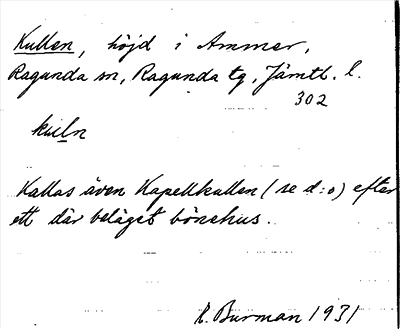 Kullen, höjd i Ammer,
Ragunda sn, Ragunda tg, Jämtl. l.
302
kuln
Kallas även Kapellkullen (se d:o) efter
ett där beläget bönehus.
R. Burman 1931